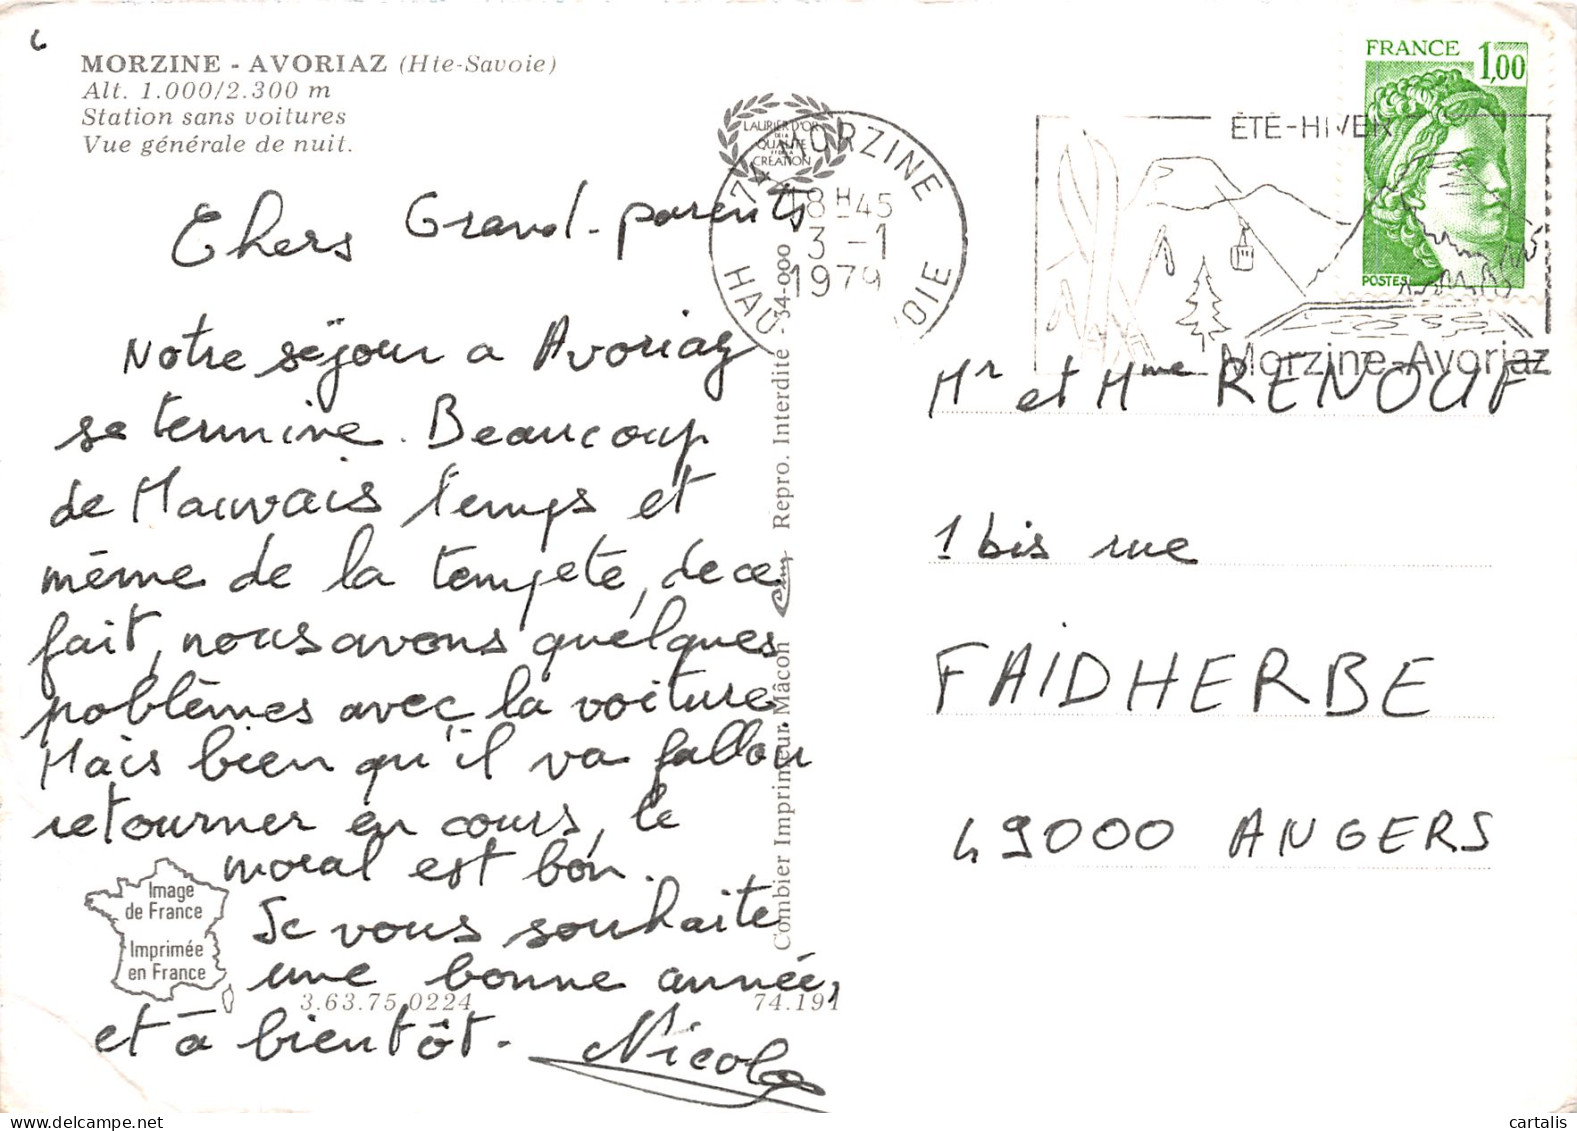 MORZINE - AVORIAZ (Hte-Savoie)
Alt. 1.000/2.300 m
Station sans voitures
Vue générale de nuit.
LAURIER D'OR
DE LA
QUALITÉ
ET DE LA
CRÉATION
74 MORZINE
18H45
3 -1
1979
ÉTÉ-HIVER
Morzine-Avoriaz
FRANCE 1,00
POSTES
Chers Grand-parents
Notre séjour a Avoriaz
se termine. Beaucoup
de Mauvais temps et
même de la tempete, de ce
fait, nous avons quelques
problèmes avec la voiture
Mais bien qu'il va falloir
retourner en cours, le
moral est bon.
Je vous souhaite
une bonne année,
et à bientôt.
Nicolas
Mr et Mme RENOUF
1 bis rue
FAIDHERBE
49000 ANGERS
Combier Imprimeur Mâcon Cim Repro. Interdite - 34-000
Image
de France
Imprimée
en France
3.63.75.0224
74.191
cartalis